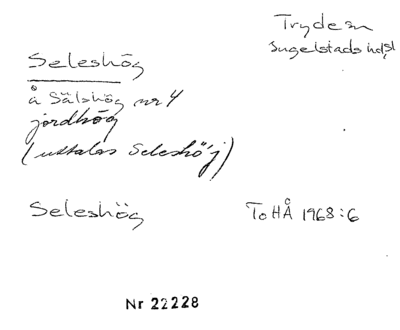 Tryde sn
Ingelstads hd, sl
Seleshög
å Sälshög nr 4
jordhög
(uttalas Seleshö'j)
Seleshög
ToHÅ 1968:6
Nr 22228